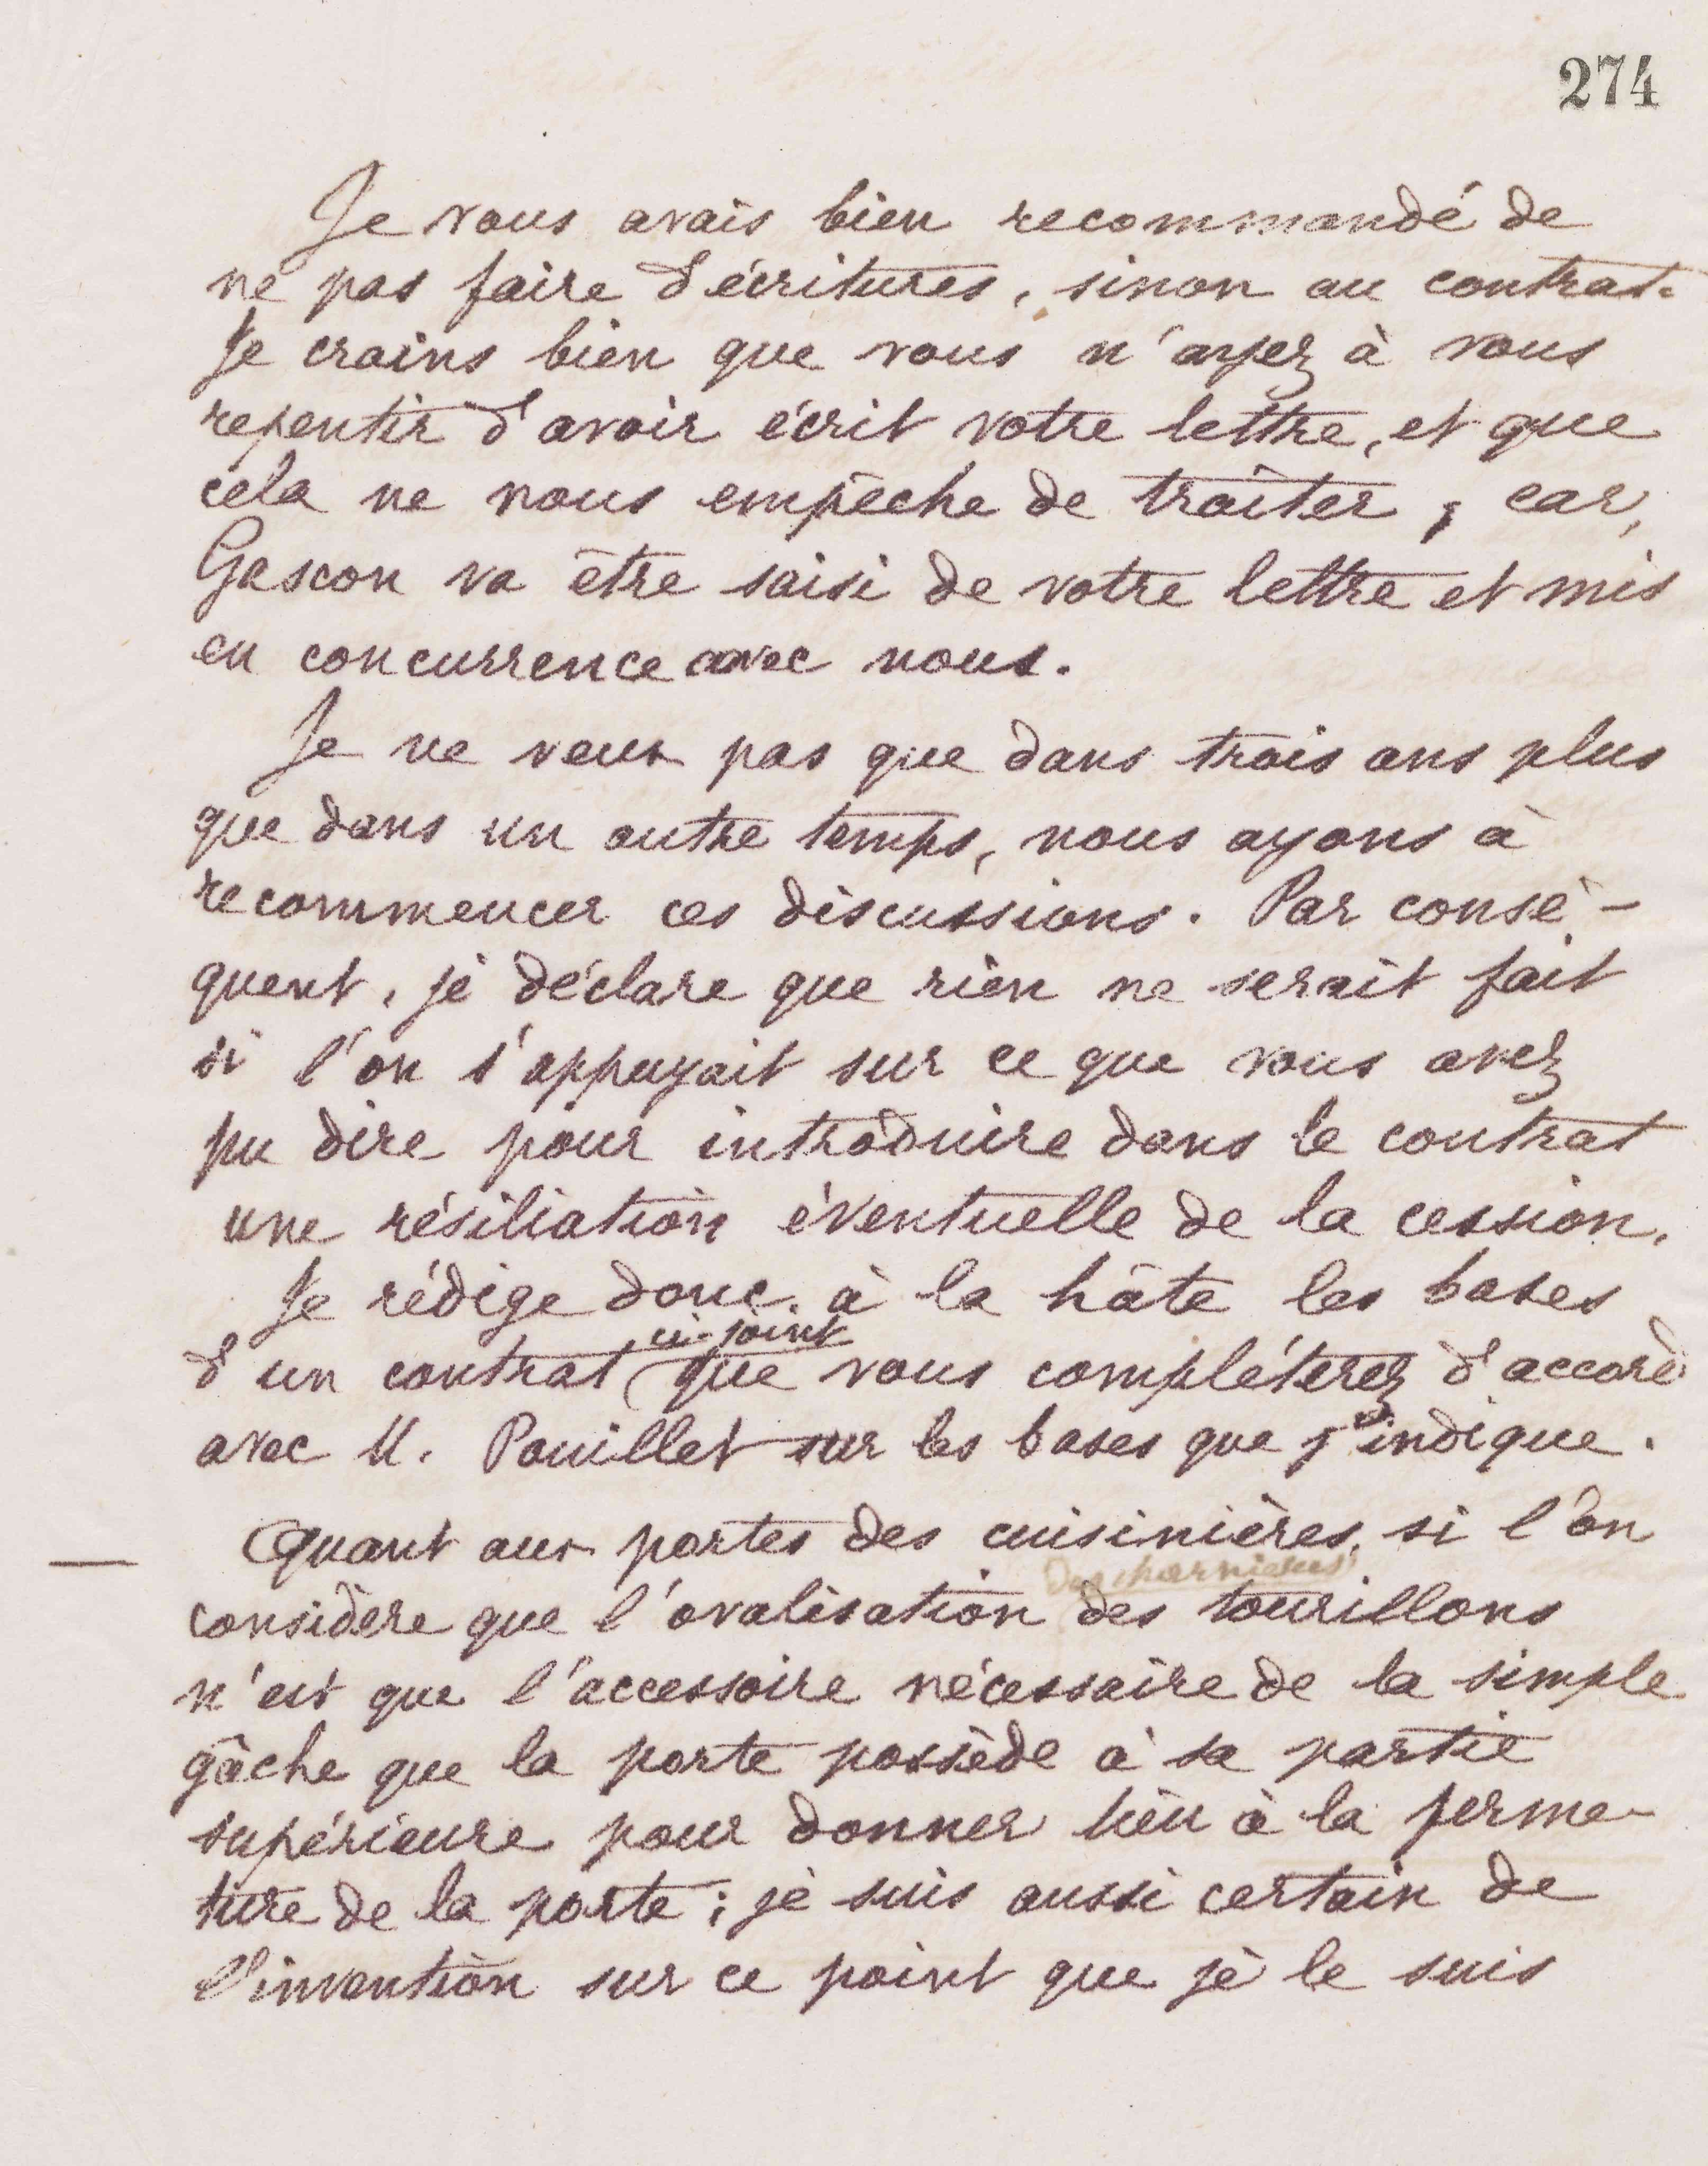 274
Je vous avais bien recommandé de
ne pas faire d'écritures, sinon au contrat.
Je crains bien que vous n'ayez à vous
repentir d'avoir écrit votre lettre, et que
cela ne nous empêche de traiter, car,
Gascon va être saisi de votre lettre et mis
en concurrence avec nous.
Je ne veux pas que dans trois ans plus
que dans un autre temps, nous ayons à
recommencer ces discussions. Par consé-
quent, je déclare que rien ne serait fait
si l'on s'appuyait sur ce que vous avez
pu dire pour introduire dans le contrat
une résiliation éventuelle de la cession.
Je rédige donc à la hâte les bases
ci-joint
d'un contrat que vous compléterez d'accord
avec M. Pouillet sur les bases que j'indique.
— Quant aux portes des cuisinières, si l'on
des charnières
considère que l'ovalisation des tourillons
n'est que l'accessoire nécessaire de la simple
gâche que la porte possède à sa partie
supérieure pour donner lieu à la ferme-
ture de la porte ; je suis aussi certain de
l'invention sur ce point que je le suis